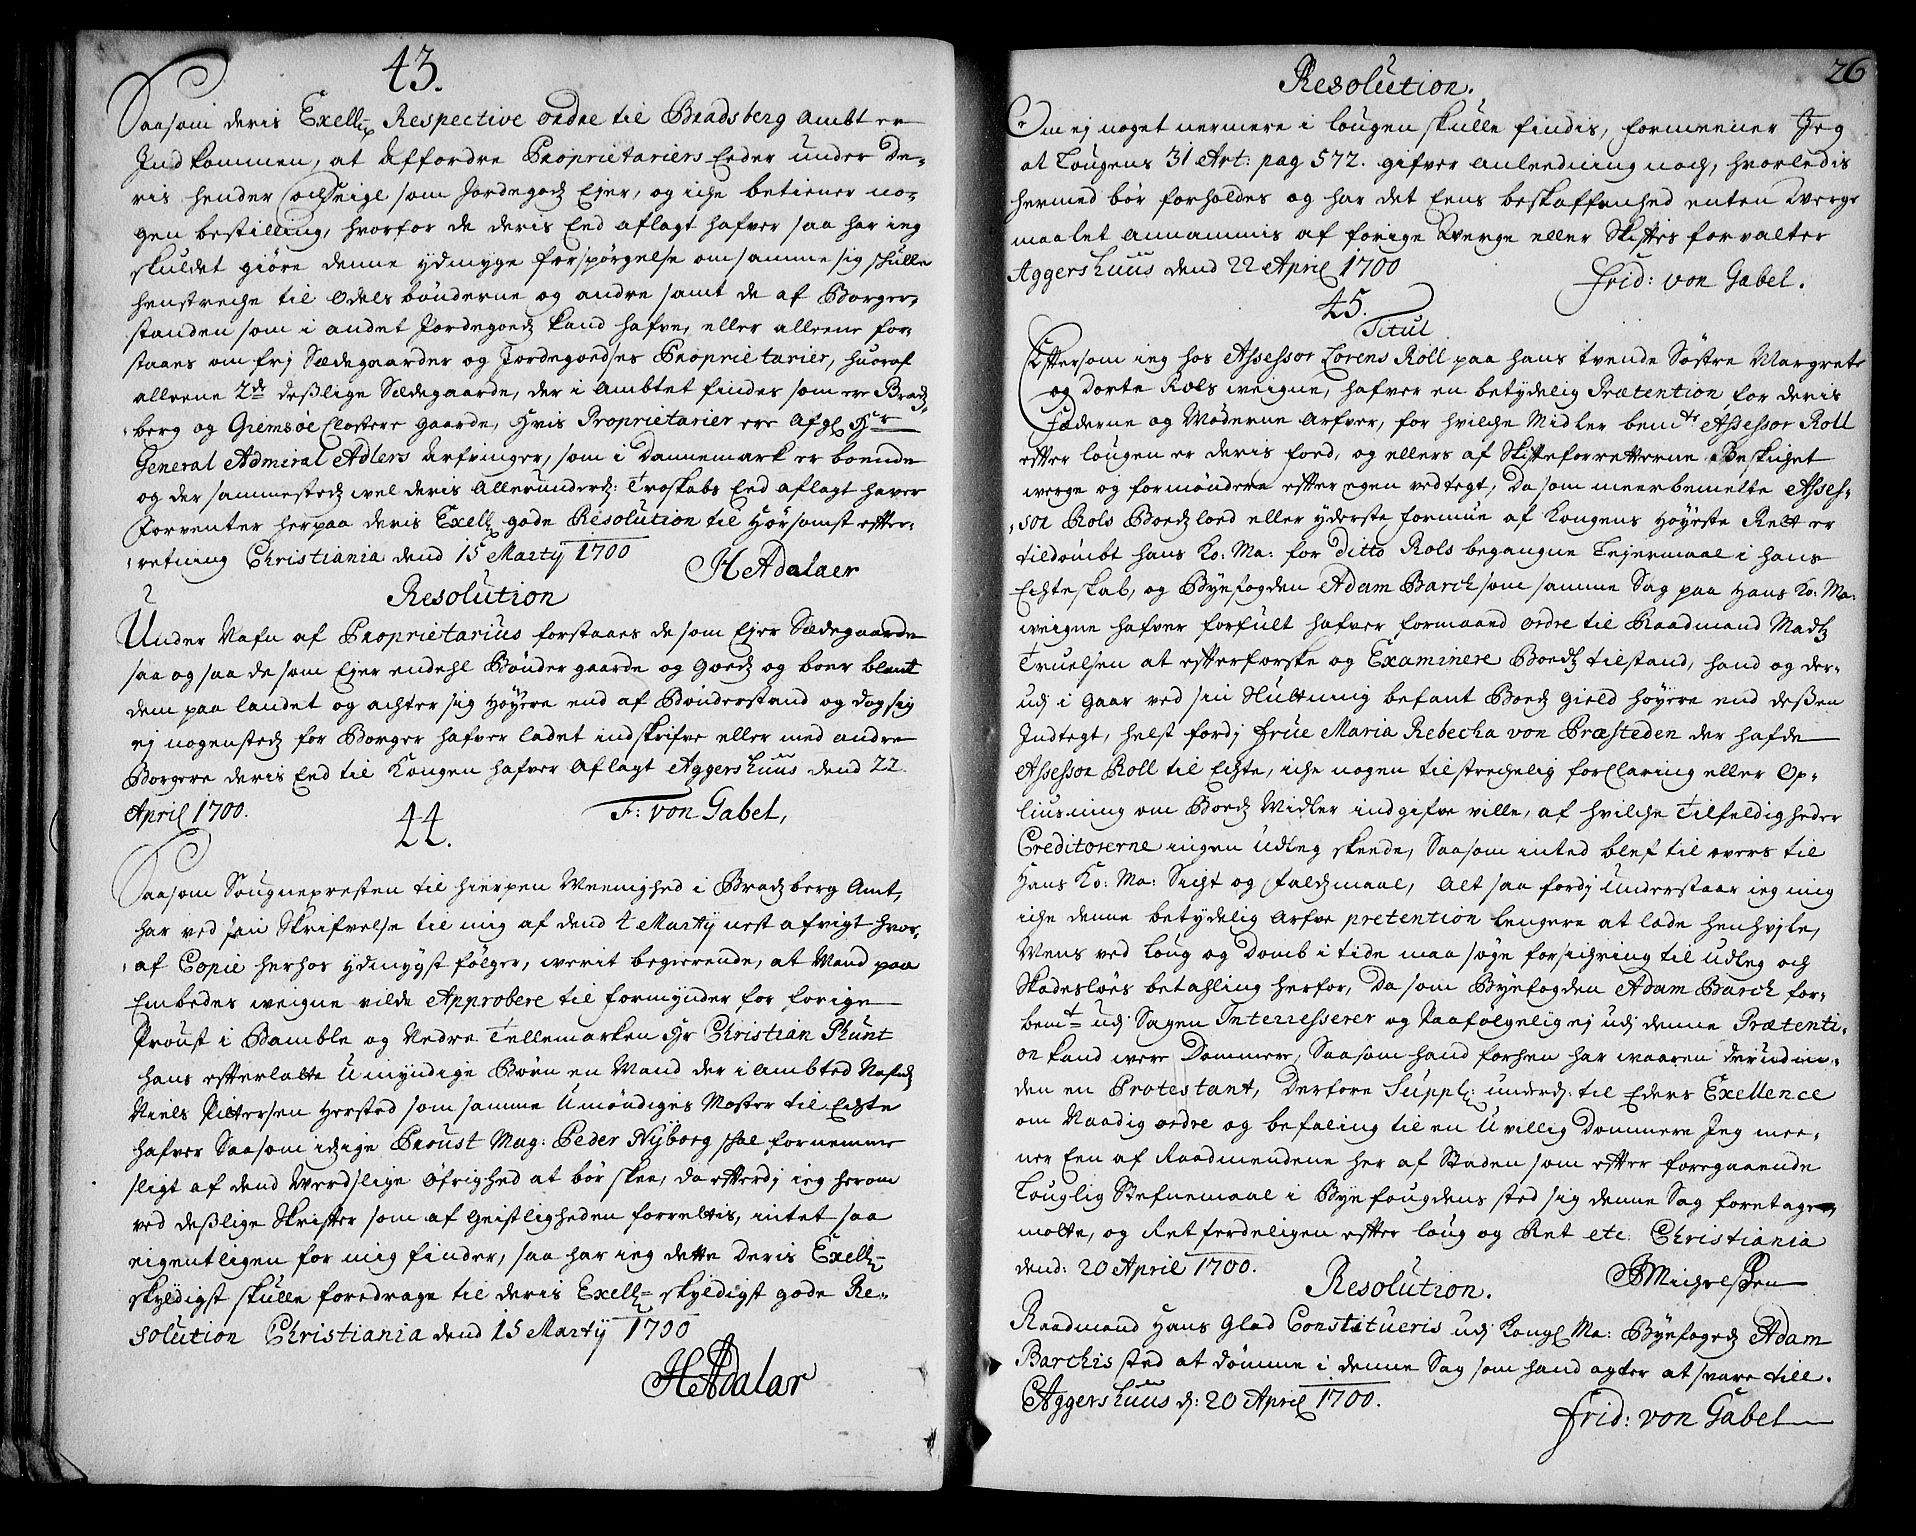 43.
Saasom deris Exell: Respective ordre til Bradsberg Ambt er
Indkommen, at affordre Proprietariers Eeder under De-
ris hender och seigl som Jordegodz Ejer, og iche betiener no-
gen bestilling, hvorfor de deris Eed aflagt hafver saa har ieg
skuldet giøre denne ydmyge forspørgelse om samme sig schulle
henstreche til Odelsbønderne og andre samt de af Borger-
standen som i andet Jordegoedz kand hafve, eller alleene for-
staaes om frj Sædegaarder og Jordegoedses Proprietarier, huoraf
alleene 2de deßlige Sædegaarde, der i Ambtet findes som er Bradz-
berg og Giemsøe Closters gaarde, Hvis Proprietarier ere Afgl Hr
General Admiral Adlers Arfvinger, som i Dannemark er boende
og der sammestedz vel deris Allerunderd: Troskabs Eed aflagt haver
Forventer herpaa deris Exell: gode Resolution til Hørsomst efter-
retning Christiania dend 15 Martij 1700
HAdalaer
Resolution
Under Nafn af Proprietarius forstaaes de som Ejer Sædegaarde
saa og saa de som Ejer endehl Bønder gaarde og Goedz og boer blant
dem paa landet og achter sig Høyere end af Bønderstand og dog sig
ej nogenstedz for Borger hafver ladet indskrifve eller med andre
Borgere deris Eed til Kongen hafver Aflagt Aggershuus dend 22.
April 1700.
F: von Gabel,
44.
Saasom Sougnepresten til Hierpen Meenighed i Bradzberg Amt,
har ved sin Skrifvelse til mig af dend 4 Martij nest afvigt hvor-
af Copie herhos ydmygst følger, verit begierende, at Mand paa
Embedes weigne vilde Approbere til formynder for forige
Proust i Bamble og Nedre Tellemarken Hr Christian Plunt
hans efterlatte Umyndige Børn en Mand der i Ambted Nafnl
Niels Pittersen Hersted som samme Umøndiges Moster til Echte
hafver Saasom itzige Proust Mag: Peder Nyborg schal fornemme
sligt af dend Werdslige Øfrighed at bør skee, da efterdj ieg herom
ved deßlige Skrifter som af Geistligheden forrettis, intet saa
eigentligen for mig finder, saa har ieg dette Deris Exell:
skyldigst skulle foredrage til deris Exell: skyldigst gode Re-
solution Christiania dend 15 Martij 1700
HAdalar
26
Resolution.
Om ej noget nermere i lougen skulle findis, formeener Jeg
at Lougens 31 Art: pag 572. gifver anleedning noch, hvorledis
hermed bør forholdes og har det Eens beskaffenhed enten Werge
maalet annammis af forige Werge eller Skiftes forvalter
Aggershuus dend 22 April 1700
Frid: von Gabel.
45.
Titul
Eftersom ieg hos Assessor Lorens Roll paa hans tvende Søstre Margrete
og Dorte Rols weigne, hafver en betydelig Prætention for deris
Fæderne og Møderne Arfver, for hvilche Midler bemte Assessor Roll
efter lougen er deris fød, og ellers af Skifteforretterne Beskichet
werge og formøndere efter egen vedtegt, Da som meerbemelte Asses-
sor Rols Boedzlod eller yderste formue af Kongens Høyeste Rett er
tildømbt hans Ko: Ma: for ditto Rols begangne Lejermaal i hans
Echteskab, og Byefogden Adam Barch som samme Sag paa Hans Ko: Ma:
weigne hafver forfult hafver formaaed ordre til Raadmand Madz
Truelsen at efterforske og Examinere Boedz tilstand, hand og der-
udj i Gaar ved sin Slutning befant Boedz gield høyere end deßen
Indtegt, helst fordj Frue Maria Rebecha von Præsteden der hafde
Assessor Roll til Echte, iche nogen tilstrechelig forclaring eller Op-
liusning om Boedz Midler indgifve ville, af hvilche Tilfeldigheder
Creditorerne ingen Udleg skeede, Saasom inted blef til overs til
Hans Ko: Ma: Sicht og faldzmaal, Alt saa fordj understaar ieg mig
iche denne betydelig Arfve pretention lengere at lade henhvjle,
Mens ved Loug og Domb i tide maa søge forsichring til Udleg och
Skadesløes betahling herfor, Da som Byefogden Adam Barch for-
bemt udj Sagen Interresserer og Paafølgelig ej udj denne Prætenti-
on kand were Dommere, Saasom hand forhen har waaren derundin-
den en Protestant, Derfore Suppl: underd: til Eders Exellence
om Naadig ordre og befaling til en Uvillig Dommere Jeg mee-
ner Een af Raadmendene her af Staden som efter foregaaende
Louglig Stefnemaal i Byefougdens sted sig denne Sag foretage
motte, og Retferdeligen efter loug og Ret etc: Christiania
dend: 20 April 1700.
Resolution.
Raadmand Hans Glad Constitueris udj Kongl Ma: Byefogedz Adam
Barchis sted at dømme i denne Sag som hand agter at svare till.
Aggershuus d: 20 April 1700.
Frid: von Gabel